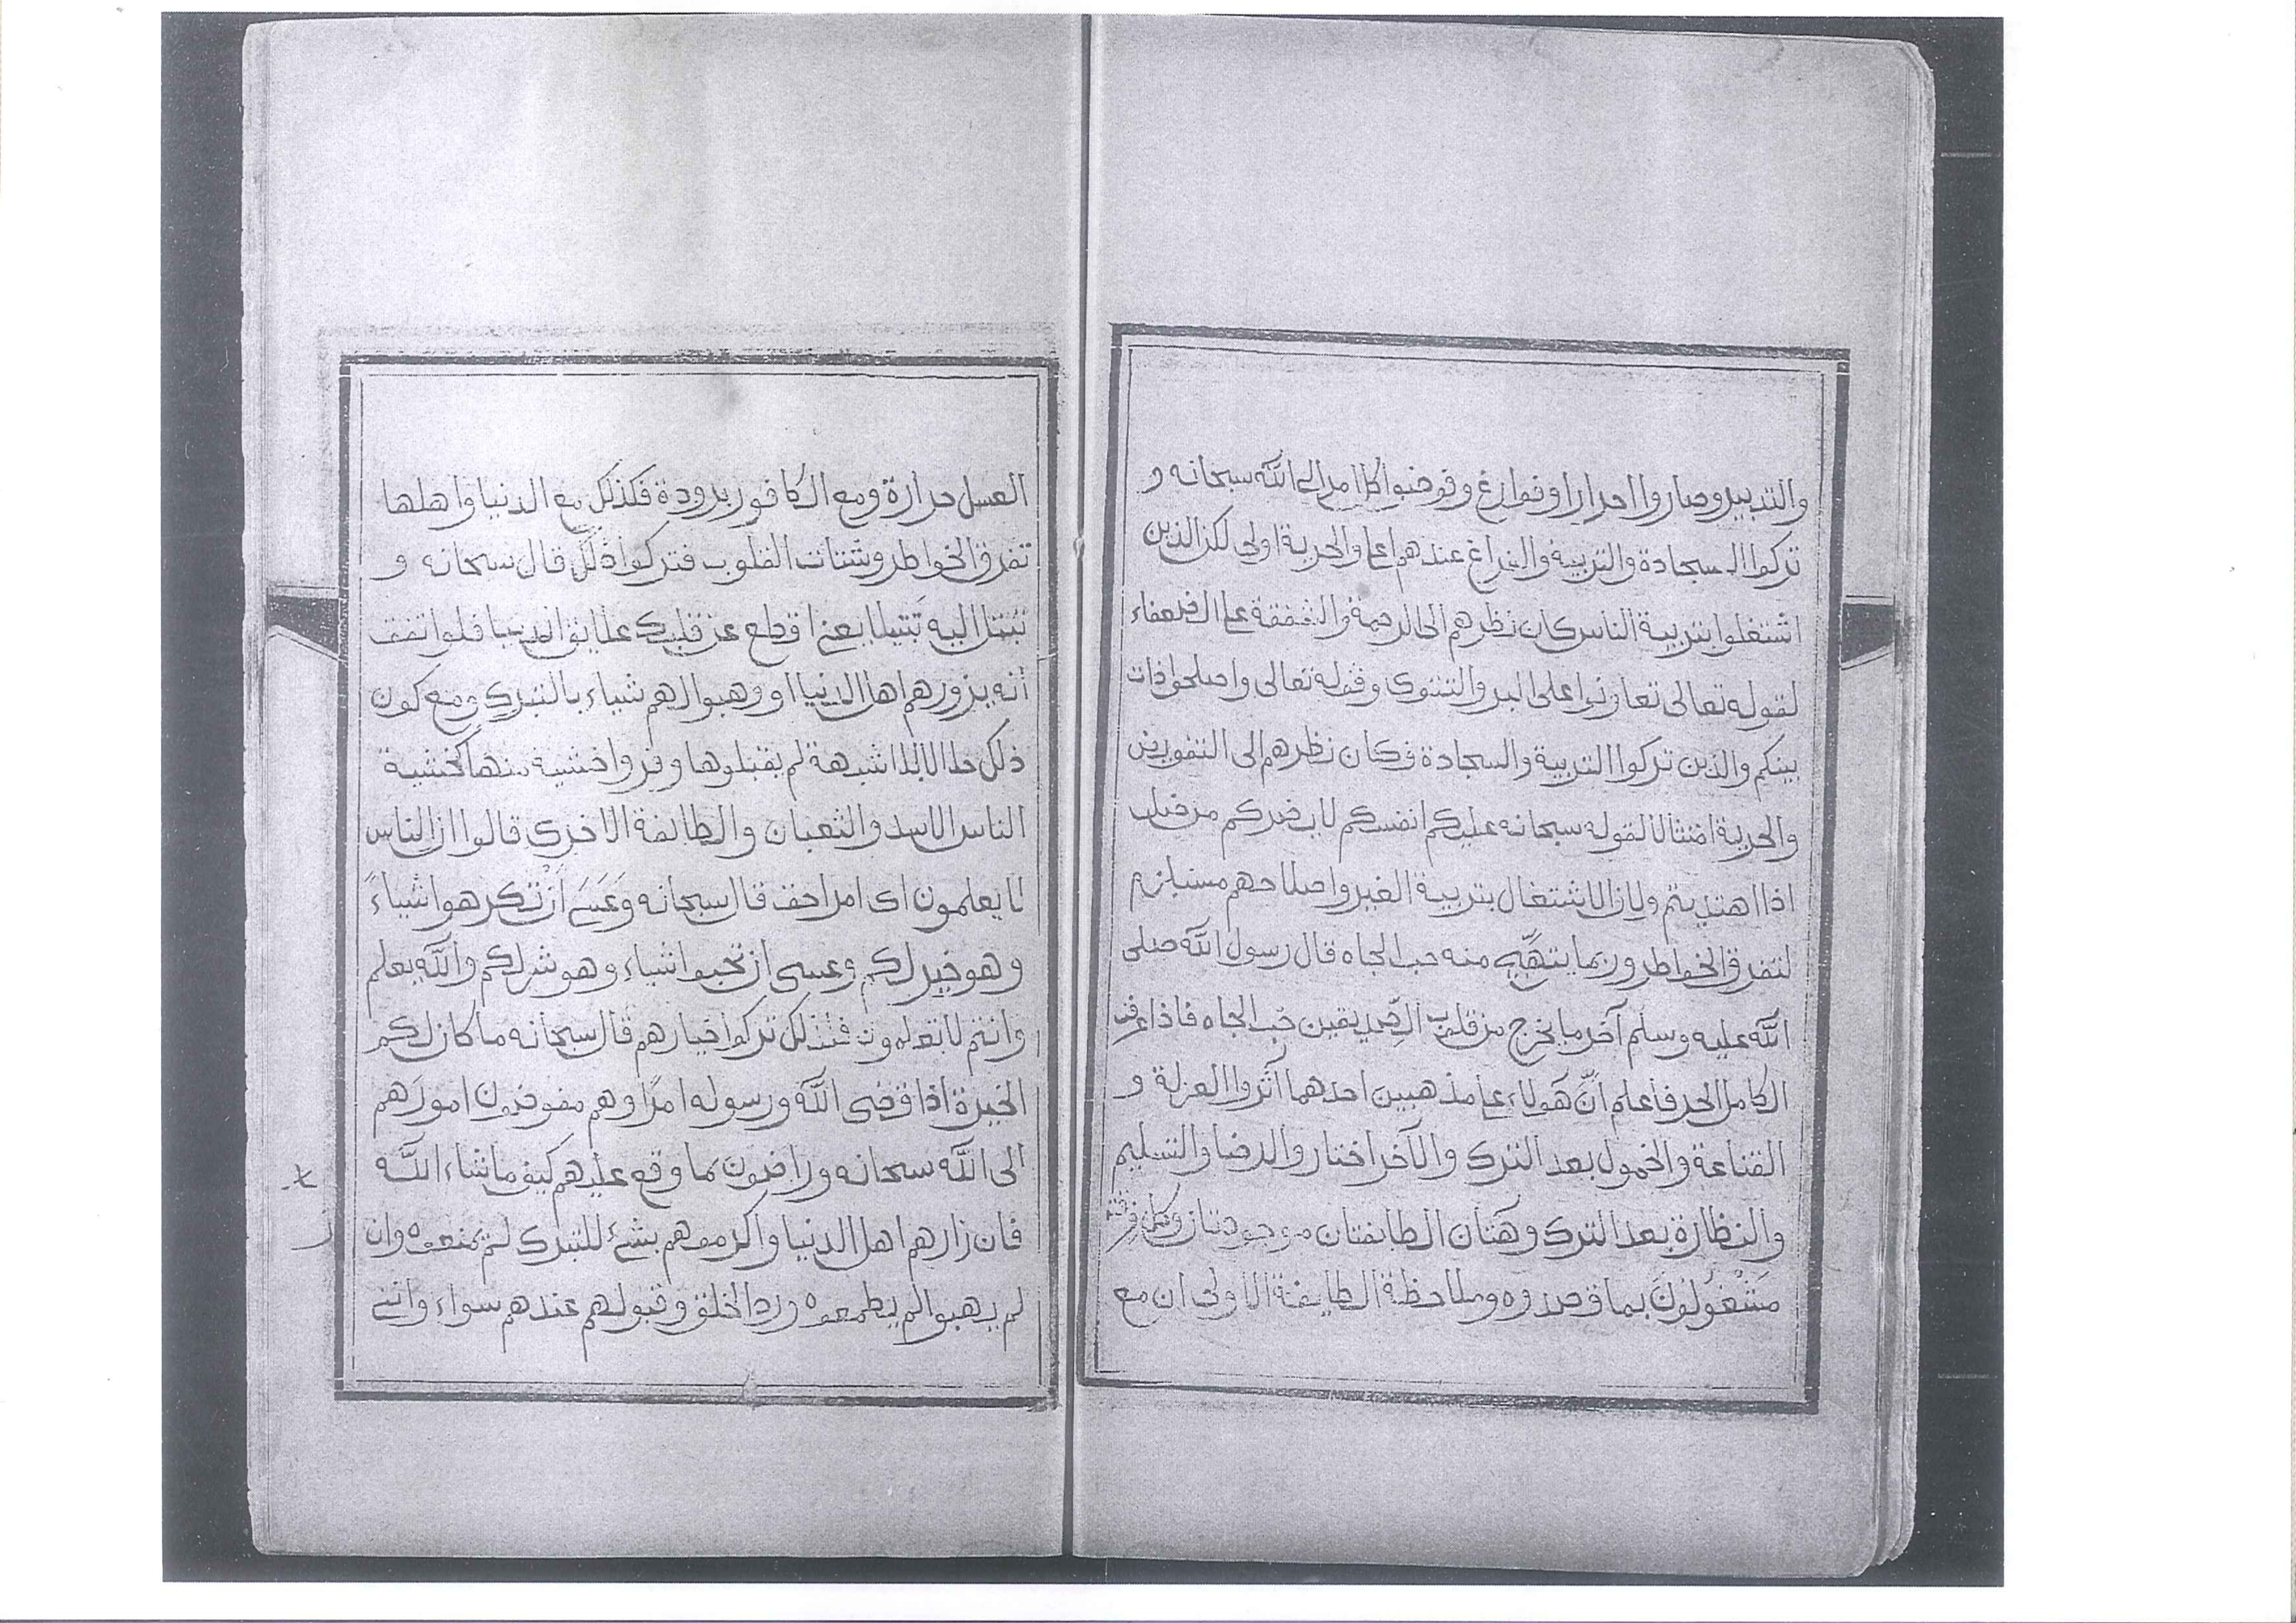 والتدبير وصاروا احرارا وفوارغ وفوضوا كل امر الى الله سبحانه و
تركوا السجادة والتربية والفراغ عندهم اعلى والحرية اولى لكن الذين
اشتغلوا بتربية الناس كان نظرهم الى الرحمة والشفقة على الضعفاء
لقوله تعالى تعاونوا على البر والتقوى وقوله تعالى واصلحوا ذات
بينكم والذين تركوا التربية والسجادة فكان نظرهم الى التفويض
والحرية امتثالا لقوله سبحانه عليكم انفسكم لا يضركم من ضل
اذا اهتديتم ولان الاشتغال بتربية الغير واصلاحهم مستلزم
لتفرق الخواطر وربما يتهيّج منه حب الجاه قال رسول الله صلى
الله عليه وسلم آخر ما يخرج من قلوب الصّديقين حُب الجاه فاذا عرف
الكامل الحد فاعلم أنّ هَولاء على مذهبين احدهما آثروا العزلة و
القناعة والخمول بعد الترك والآخر اختاروا الرضا والتسليم
والنظارة بعد الترك وهَتان الطايفتان موجودتان وكل فرقة
مَشْغُولُونَ بما قصدوه وملاحظة الطايفة الاولى ان مع
العسل حرارة ومع الكافور برودة فكذلك مع الدنيا واهلها
تفرق الخواطر وشتات القلوب فتركوا ذلك قال سبحانه و
تبتل اليه تَبتيلا يعنى اقطع عن قلبك علايق الدنيا فلو اتفق
أنه يزورهم اهل الدنيا او وهبوا لهم شياء بالتبرك ومع كون
ذلك حلالا بلا شبهة لم يقبلوها وفروا خشية منها كخشية
الناس الاسد والثعبان والطائفة الاخرى قالوا ان الناس
لا يعلمون اى امر احق قال سبحانه وَعَسَى أنْ تكرهوا شياءً
وهو خير لكم وعسى ان تحبوا شياء وهو شر لكم والله يعلم
وانتم لا تعلمون فلذلك تركوا خيارهم قال سبحانه ما كان لكم
الخيرة اذا قضى الله ورسوله امرًا وهم مفوضون امورَهم
الى الله سبحانه وراضون بما وقع عليهم كيف ما شاء الله
فان زارهم اهل الدنيا واكرموهم بشئ للتبرك لم يمنعوه وان
لم يهبوا لم يطمعوه ورد الخلق وقبولهم عندهم سواء وانى